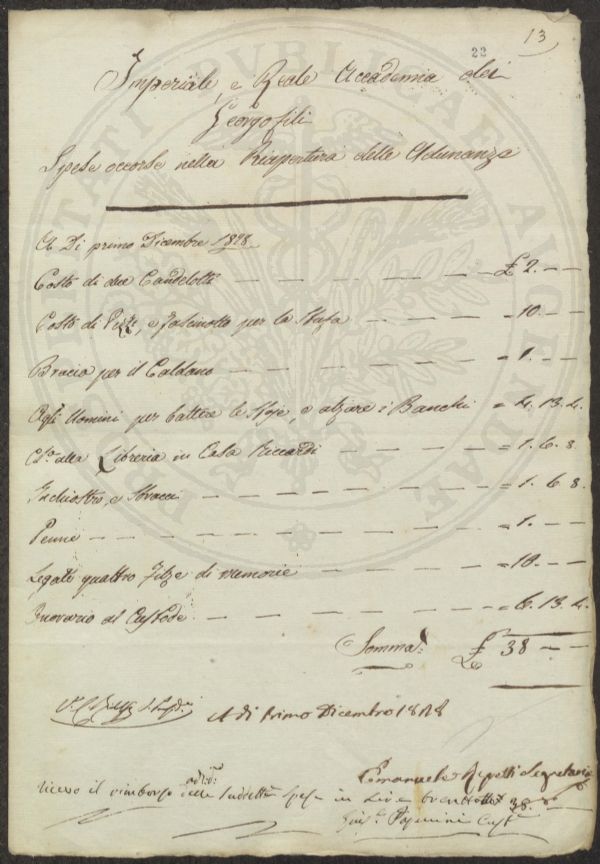 13
22
Imperiale, e Reale Accademia dei
Georgofili
Spese occorse nella Riapertura della Adunanza
A Di primo Dicembre 1828
Costo di due Candelotti — £ 2. — —
Costo di e fascinotto per la Stufa — 10. — —
Bracia per il Caldano — 1. — —
Agli Uomini per battere le Stoje, e alzare i Banchi = 4. 13. 4.
alla Libreria in Casa Riccardi — = 1. 6. 8
Inchiostro, e — = 1. 6. 8.
Penne — = 1. —
Legati quattro Filze di memorie — = 10. — —
Onorario al Custode — = 6. 13. 4.
Somma £ 38 — —
A dì Primo Dicembre 1828
Emanuele Repetti Segretario
il rimborso delle suddette spese in Lire trentotto 38.
PUBLICAE